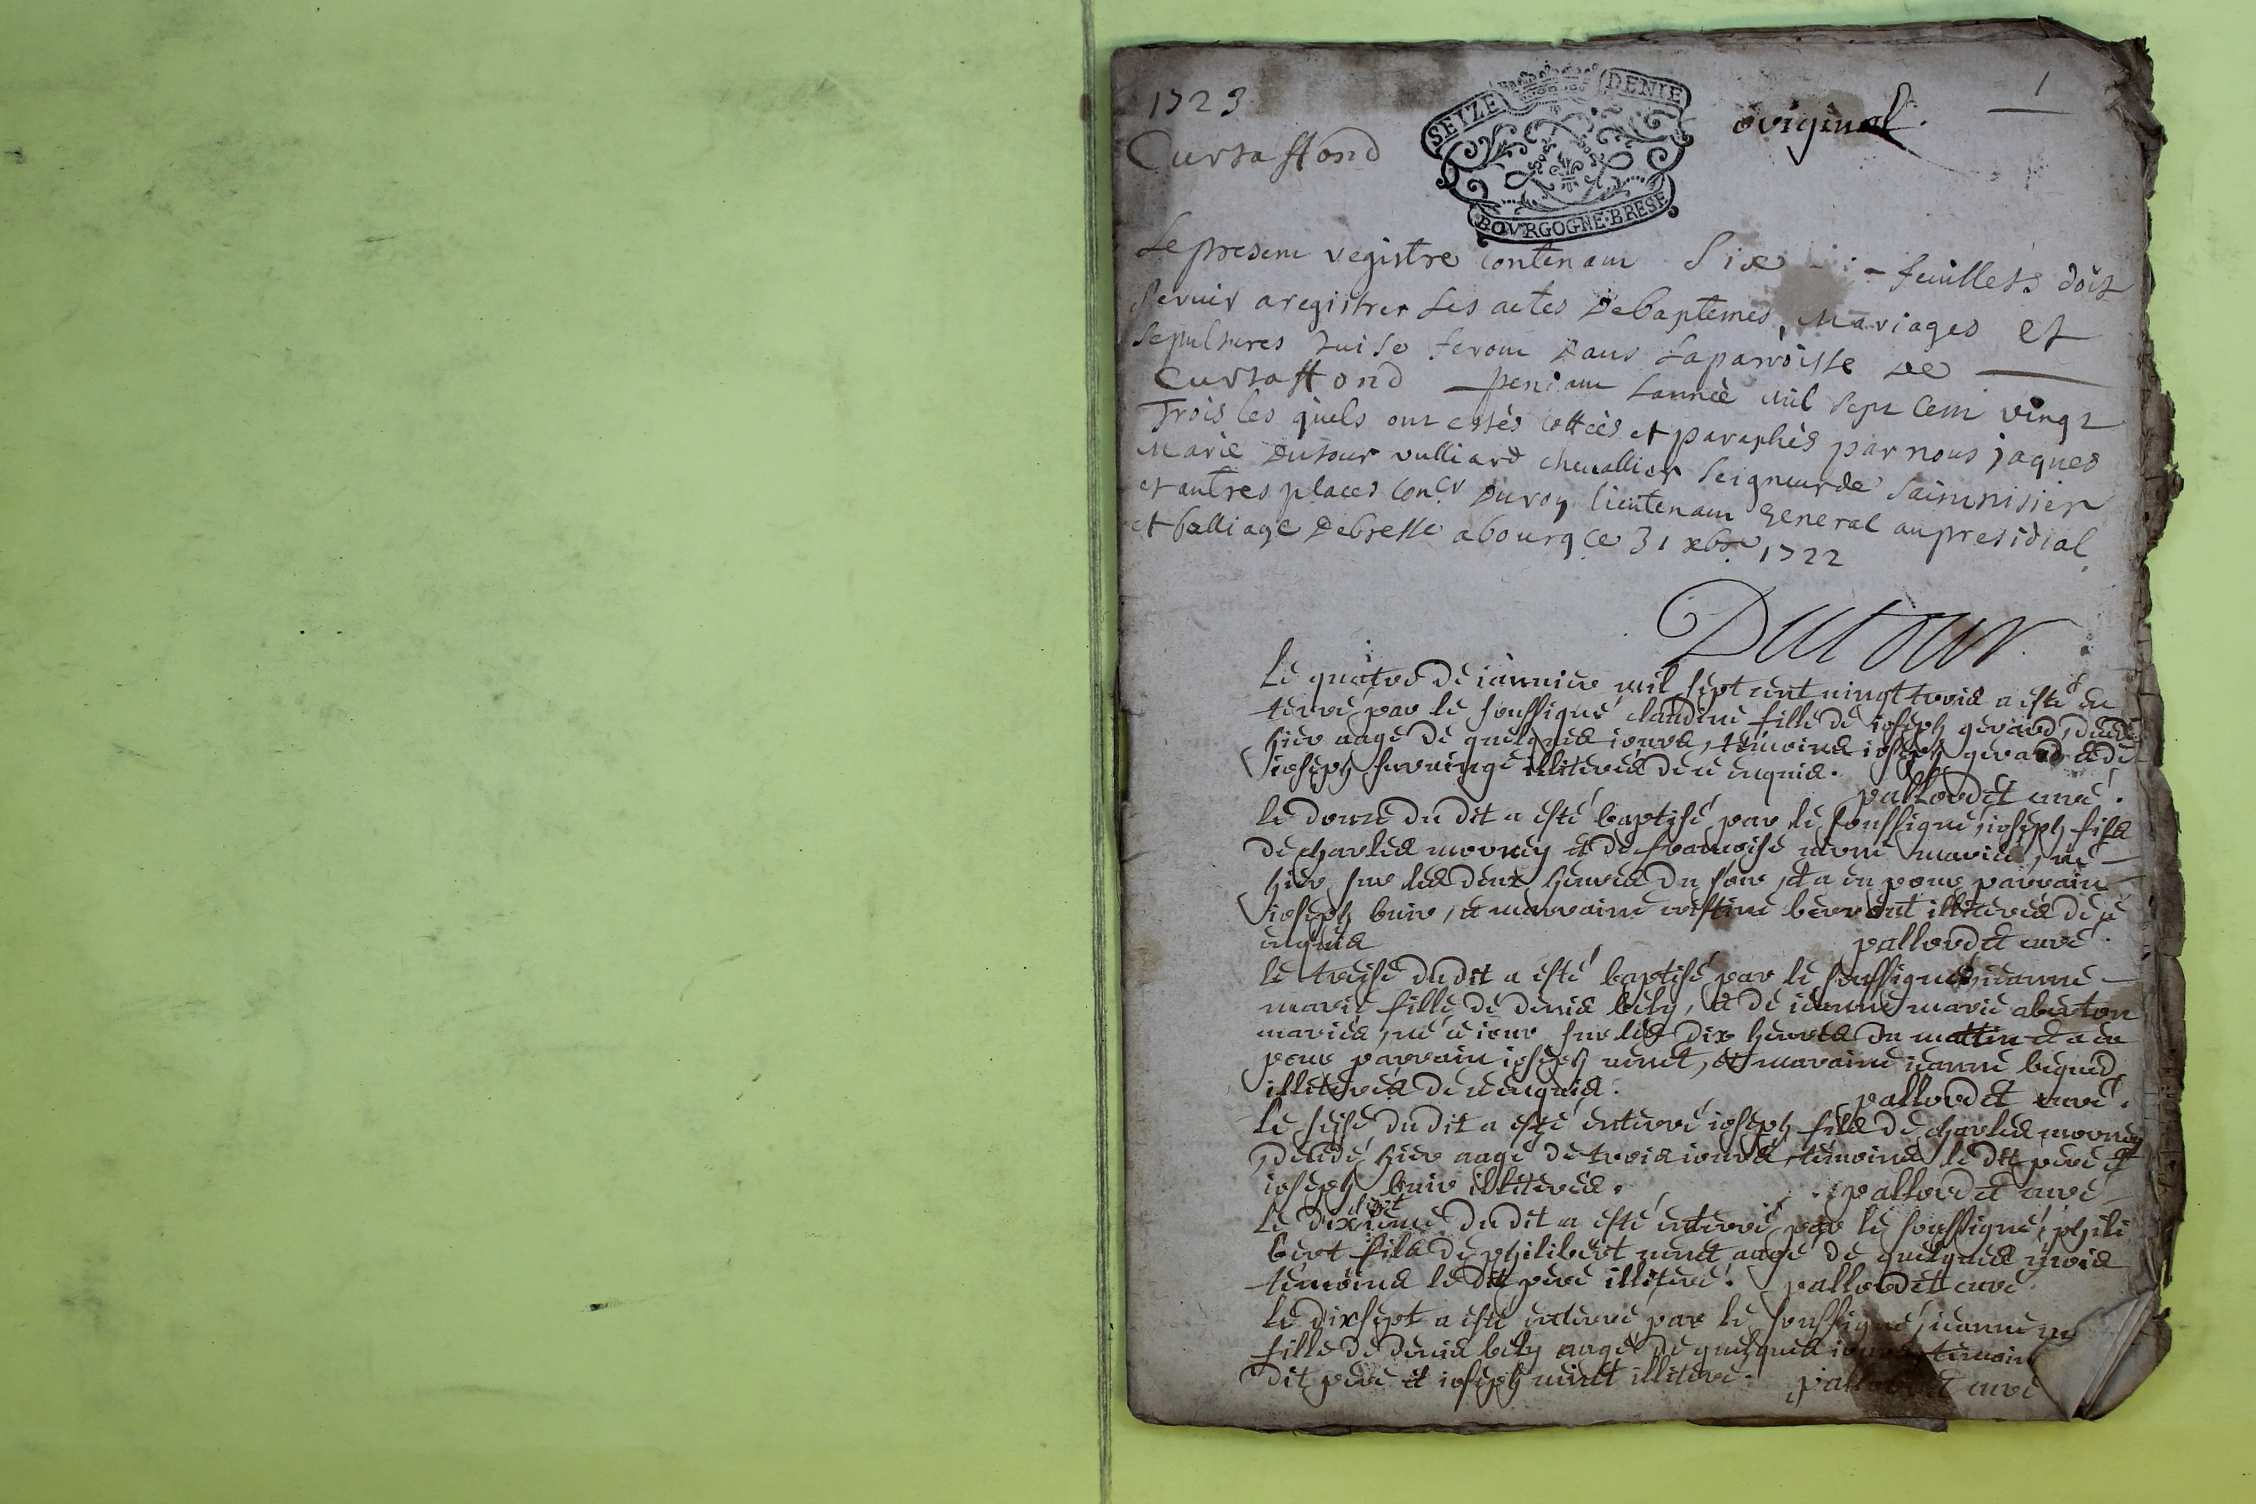 1723
1
SEIZE DENIE
original
Curtaffond
BOVRGOGNE·BRESE
Le present registre contenant Six feuillets doit
servir a registrer Les actes De Baptemes, Mariages et
Sepultures qui se feront Dans La parroisse De
Curtaffond pendant Lannée mil sept cent vingt
Trois les quels ont estés cottées et paraphés par nous jaques
Marie Dutour vulliard chevallier Seigneur de Saint nisier
et autres places Con.er Du roy lieutenant General au presidial
et balliage De bresse a bourg ce 31 xbre 1722
Dutour
Le quatre de ianvier mil sept cent vingt trois a esté en
terré par le soussigné claudine fille de ioseph gerard, decedé
hier aage de quelques iours, témoins ioseph gerard, et de
ioseph illiterés de ce enquis.
pallordet curé.
le douze du dit a esté baptisé par le soussigné, ioseph fils
de charles morney et de francoise mariés, né
hier sur les deux heures du soir, et a eu pour parrain
ioseph buir, et marraine illiterés de ce
enquis pallordet curé.
le treise du dit a esté baptisé par le soussigné, ieanne
marie fille de denis bely, et de ieanne marie aberton
mariés, né ce iour sur les dix heures du mattin et a eu
pour parrain ioseph, et maraine ieanne
illiterés de ce enquis. pallordet curé.
le seise du dit a esté enterré ioseph fils de charles morney
decedé hier aagé de trois iours, témoins le dit pere et
ioseph buir illiterés. pallordet curé
Le du dit a esté enterré par le soussigné, phili
bert fils de philibert aagé de quelques mois
témoins le dit pere illiteré. pallordet curé
le dixsept a esté enterré par le soussigné, ieanne
fille de denis bely aagé de quelques iours, temoin
dit pere et ioseph illiteré. pallordet curé